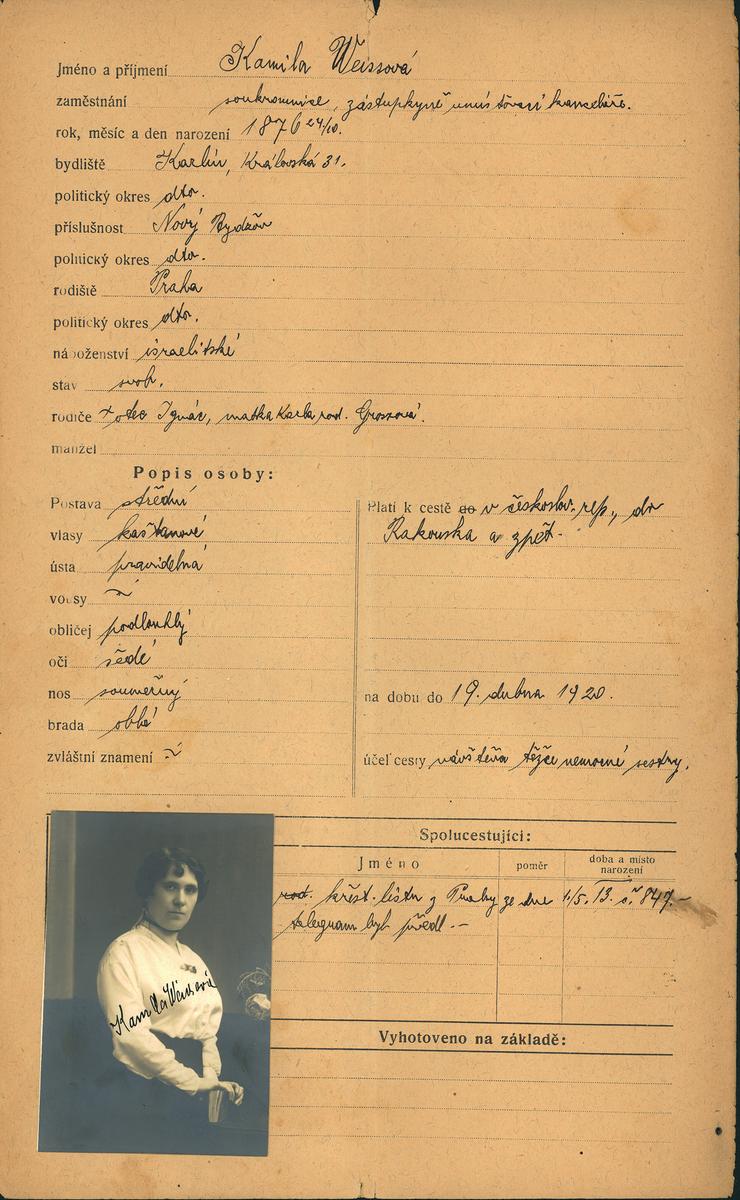 Jméno a příjmení Kamila Weissová
zaměstnání soukromnice, zástupkyně umísťovací kanceláře.
rok, měsíc a den narození 1876 24/10.
bydliště Karlín, Královská 31.
politický okres dto.
příslušnost Nový Bydžov
politický okres dto.
rodiště Praha
politický okres dto.
náboženství israelitské
stav svob.
rodiče otec Ignác, matka Karla rod. Grossová.
manžel
Popis osoby:
Postava střední
vlasy kaštanové
ústa pravidelná
vousy
obličej podlouhlý
oči šedé
nos souměrný
brada oblá
zvláštní znamení
Platí k cestě do v českoslov. rep., do
Rakouska a zpět.
na dobu do 19. dubna 1920.
účel cesty návštěva těžce nemocné sestry.
Spolucestující:
Jméno poměr doba a místo narození
rod. křest. listu z Prahy ze dne 1./5. 13. č. 847.-
telegram byl předl.-
Vyhotoveno na základě:
Kamila Weissová